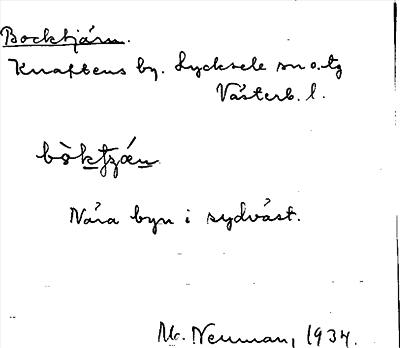 Bocktjärn.
Knaftens by. Lycksele sn o. tg
Västerb. l.
Nära byn i sydväst.
M. Neuman, 1934.